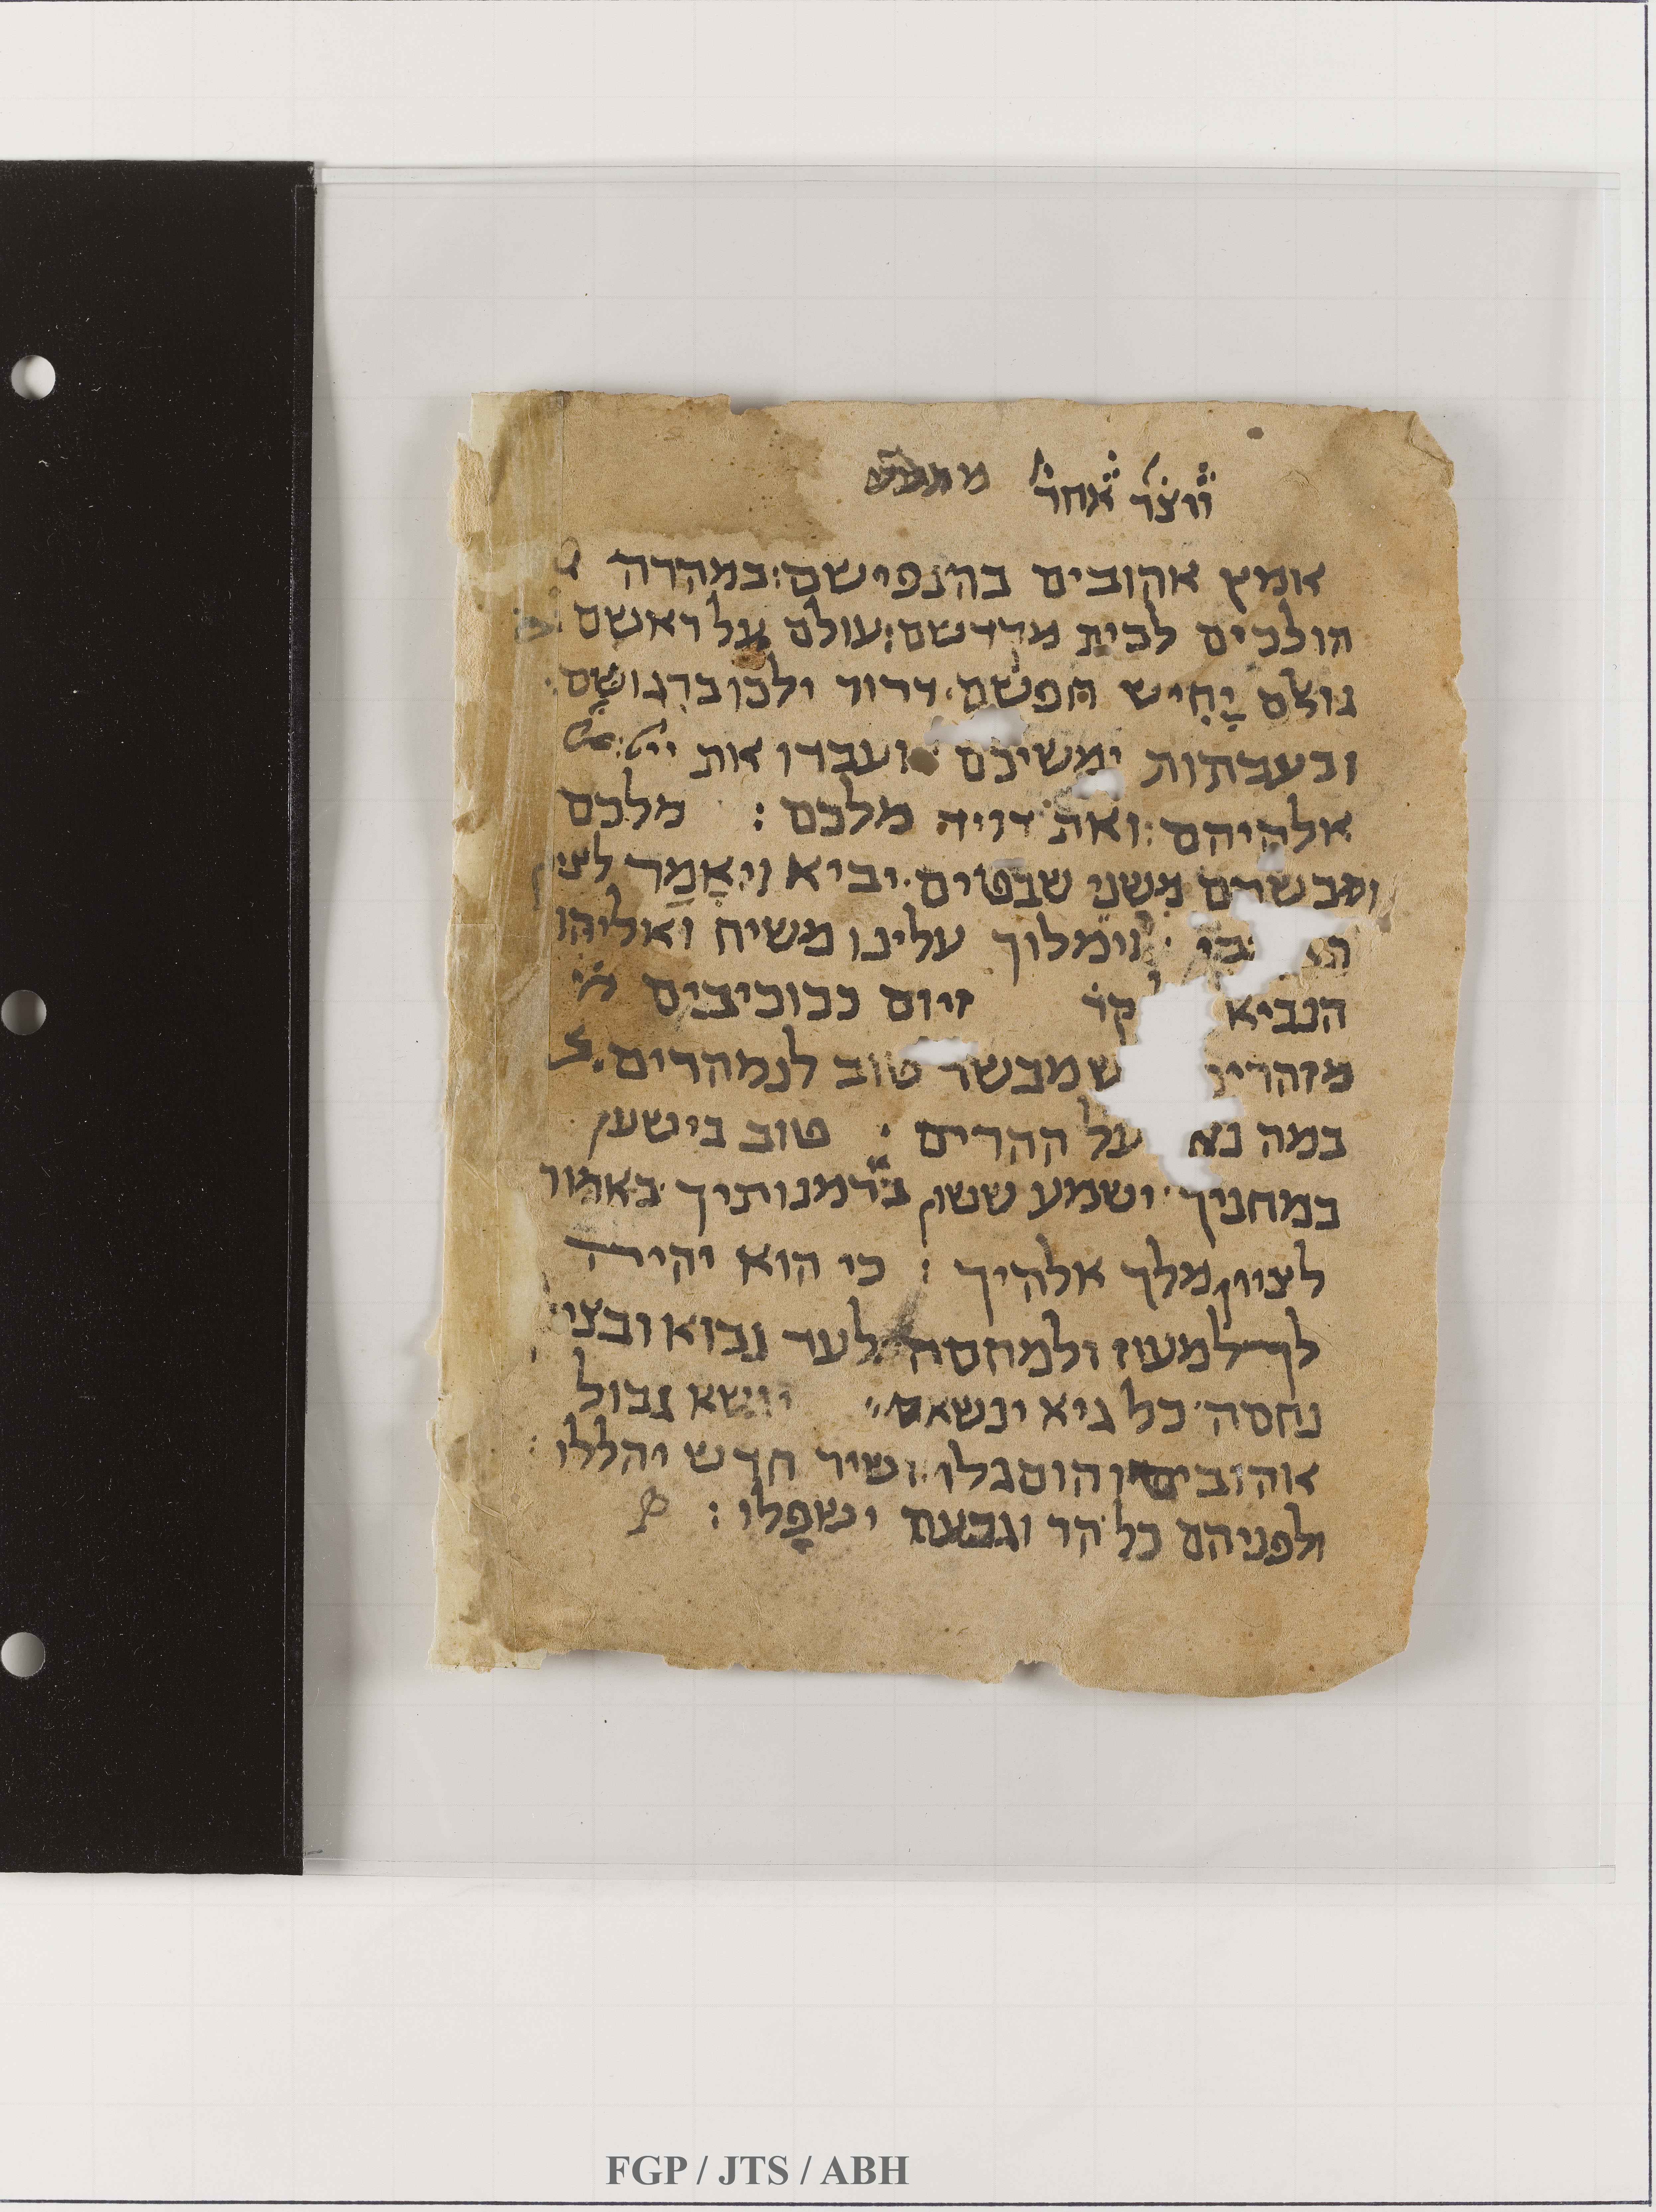 יוצר אחר
אומץ אהובים בהנפישם : במהרה
הולכים לבית מדרשם : עולם על ראשם
גולם יָחִיש חפשם · דרור ילכו ברגושָם
ובעבתות ימשיכם ועבדו את ייי
אלהיהם : ואת דויד מלכם : מלכם
ומבשרם משני שבטים · יביא ויאמַר לציון
וימלוך עלינו משיח ואליהו
הנביא קד זיום ככוכיבים
מזהרים שמבשר טוב לנמהרים ·
במה נא על ההרים : טוב בישען
במחניך · ישמע ששון ברמנותיך · באמור
לציון מלך אלהיך : כי הוא יהיה
לך למעוז ולמחסה לעד נבוא ובצי
נחסה · כל גיא ינשא יושא גבול
אהובים והוסגלו ושיר חדש יהללו :
ולפניהם כל הר וגבעה ישפָלו :
FGP / JTS / ABH